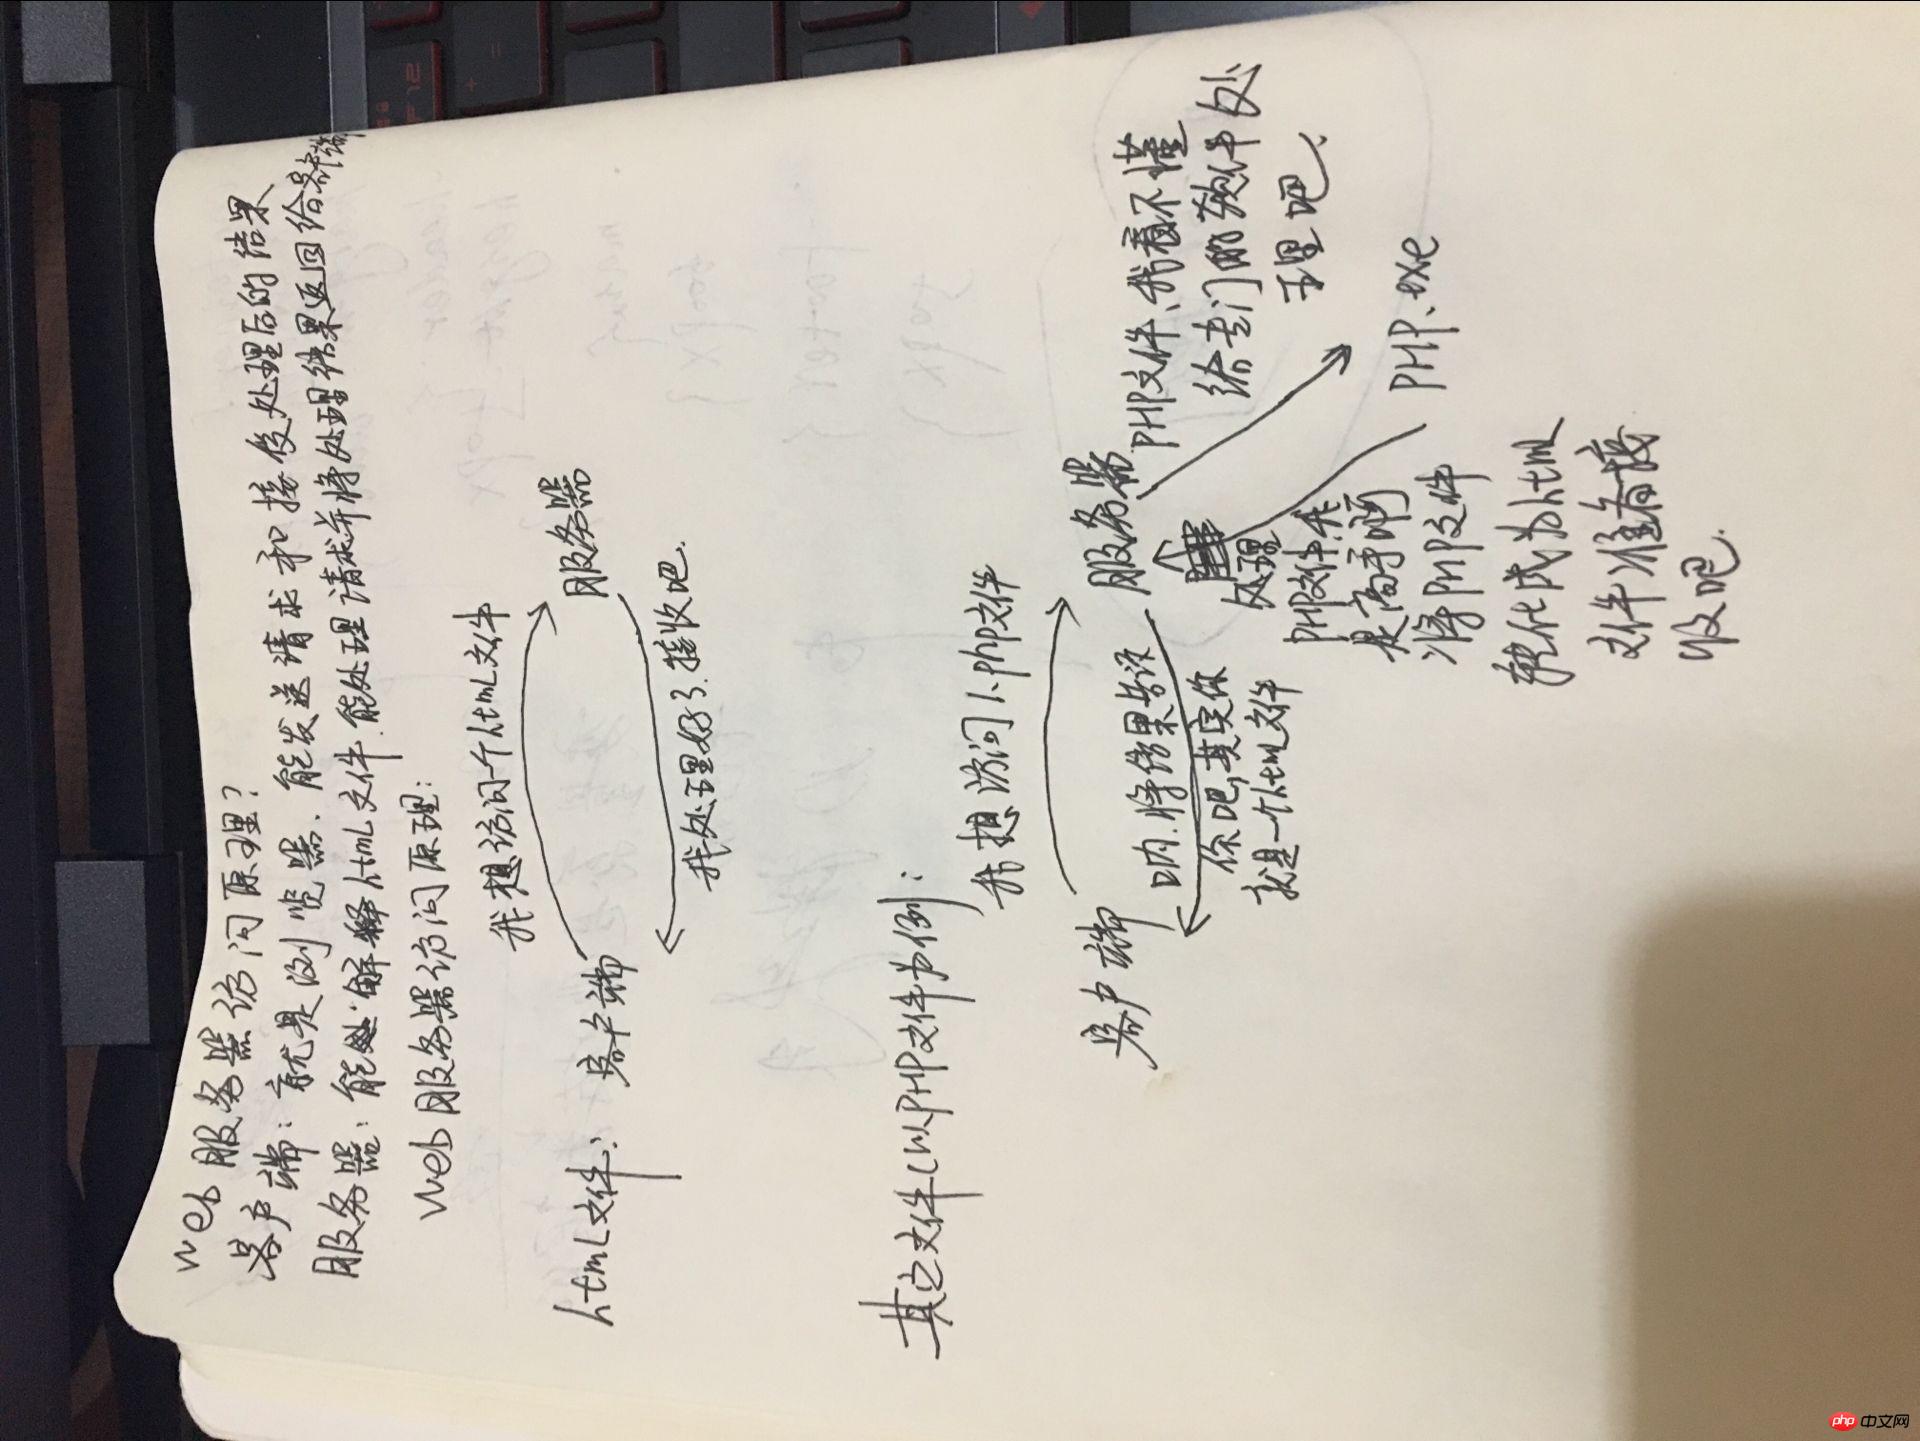 web服务器访问原理?
客户端:就是浏览器、能发送请求和接受处理后的结果
服务器:能处 解释html文件.能处理请求并将处理结果返回给客户端
Web服务器访问原理:
我想访问一个html文件
html文件: 客户端 服务器
我处理好了.接收吧.
其它文件(以PHP文件为例:
我想访问1.php文件
客户端 服务器
PHP文件、我看不懂
给专门的软件处
理吧、
呐.将结果告诉
你吧,其实你
就是一个html文件
PHP.exe
处理
PHP文件.我
是高手啊
将PHP文件
转化成为html
文件准备接
收吧.
php 中文网